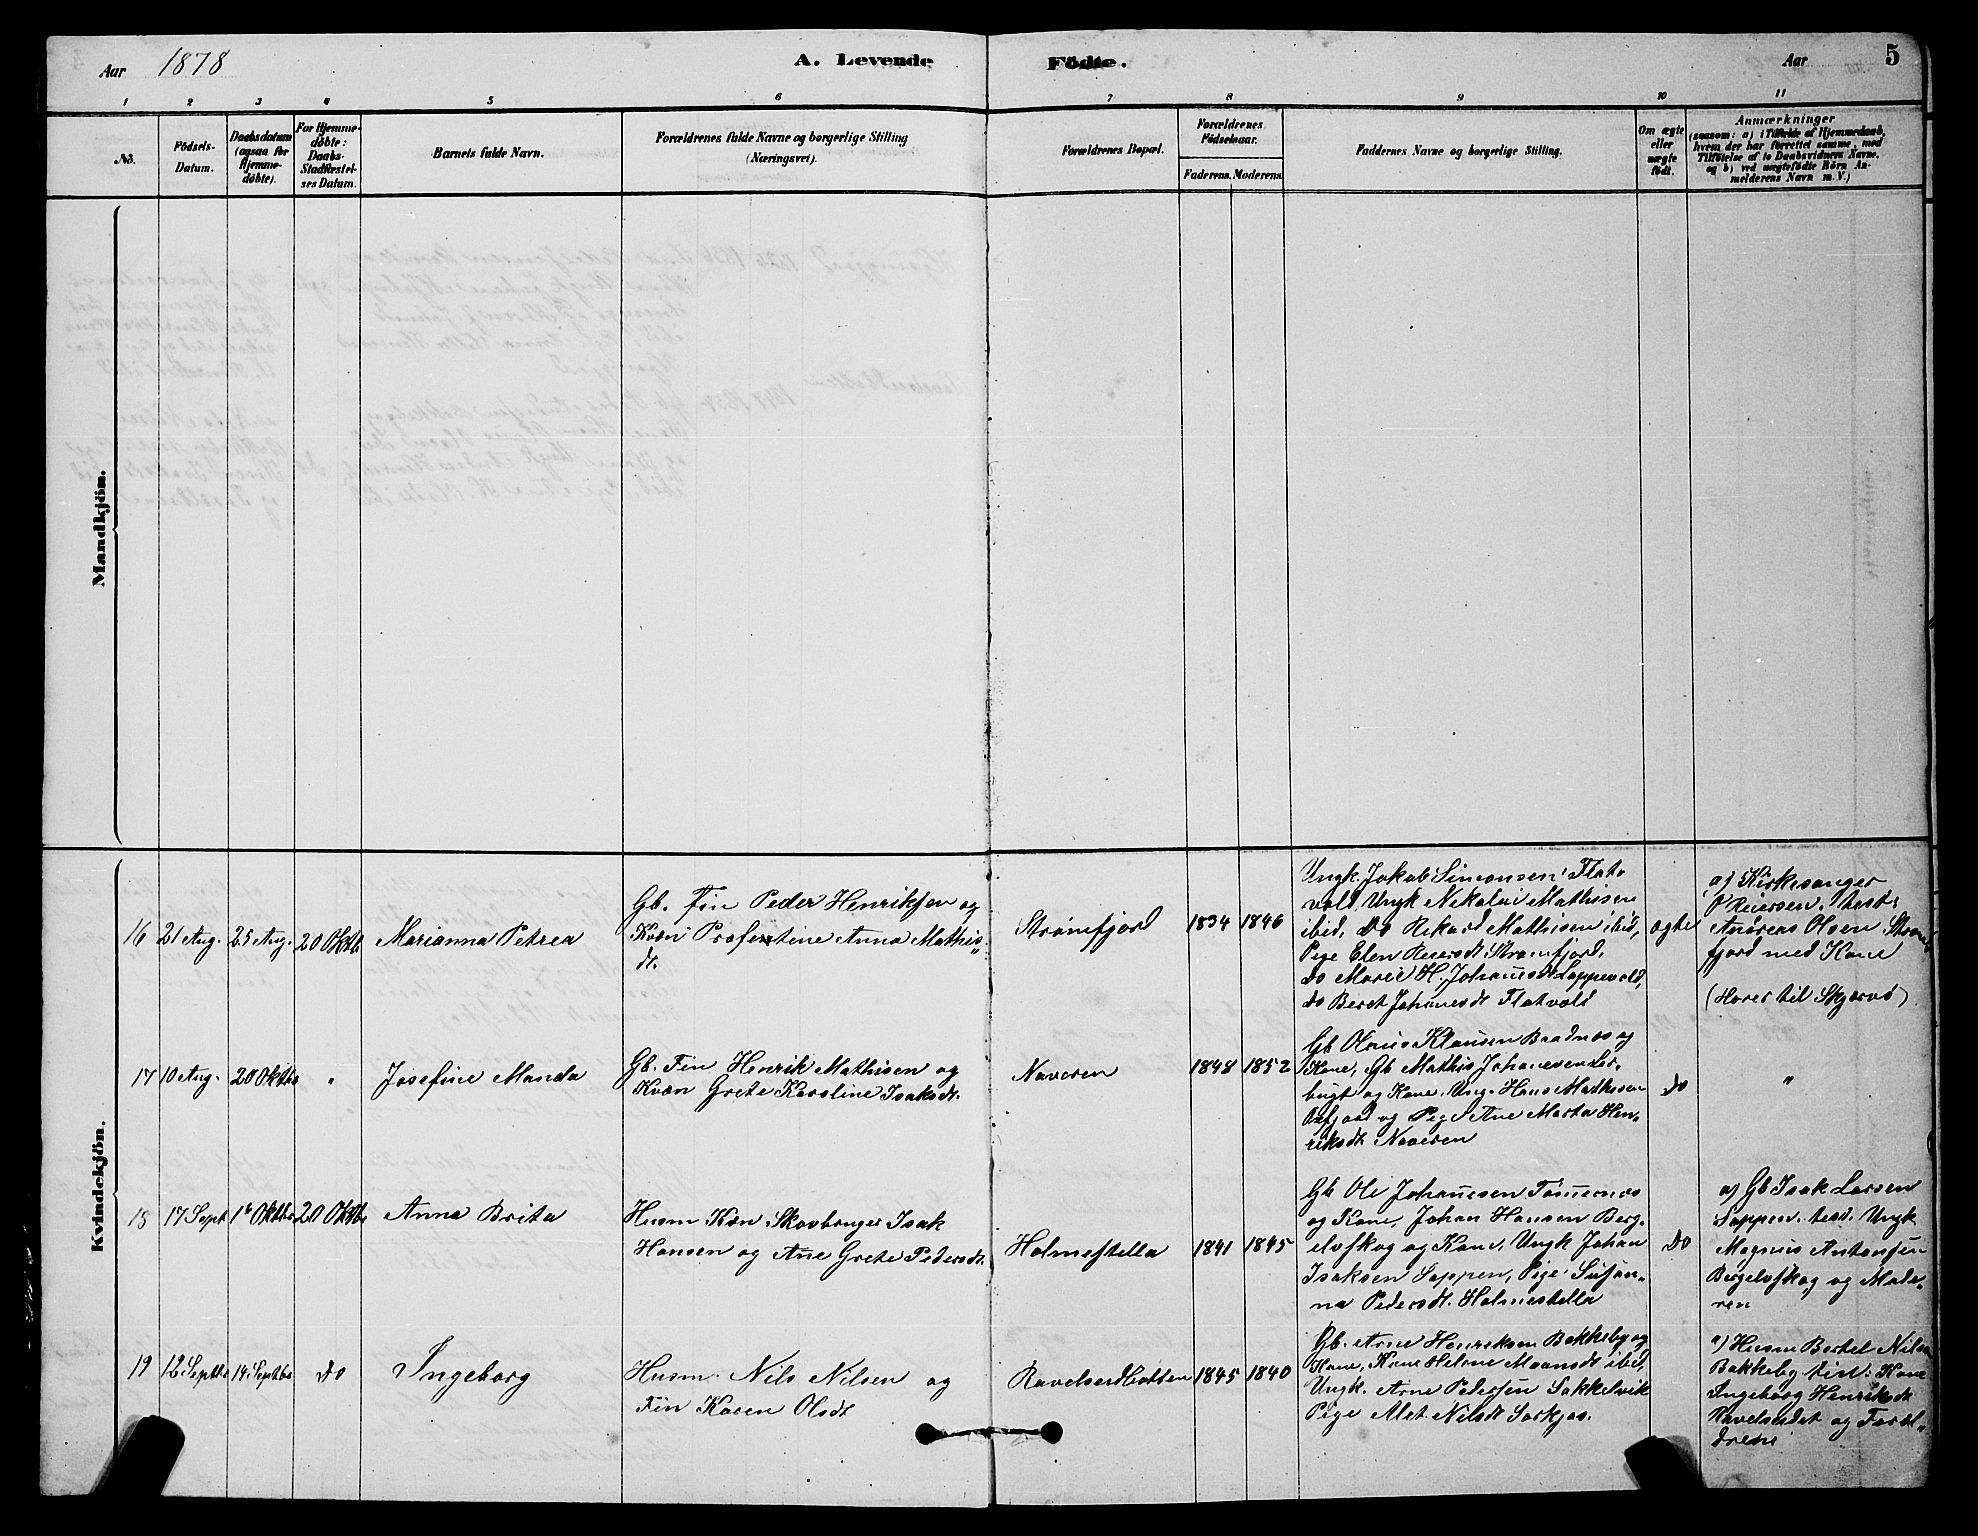 Aar 1878
A. Levende Födte.
Aar
5
1 2 3 4 5 6 7 8 9 10 11
No.
Födsels-
Datum.
Daabsdatum
(ogsaa for
Hjemme-
döbte).
For Hjemme-
döbte:
Daabs-
Stadfestel-
ses Datum.
Barnets fulde Navn.
Forældrenes fulde Navne og borgerlige Stilling
(Næringsvei).
Forældrenes Bopæl.
Forældrenes
Födselsaar.
Faderens. Moderens.
Faddernes Navne og borgerlige Stilling.
Om ægte
eller
uægte
födt.
Anmærkninger
(saasom: a) i Tilfælde af Hjemmedaab,
hvem der har forrettet samme, med
Tilföielse af to Daabsvidners Navne,
og b) ved uægtefödte Börn An-
melderens Navn m. V.)
Mandkjön.
Kvindekjön.
16
21 Aug.
25 Aug.
20 Oktb
Marianna Petrea
Gb. Fin Peder Henriksen og
Kvæn Profentine Anna Mathis„
dt.
Strømfjord
1834
1846
Ungk. Jakob Simonsen Flat-
vold, Ungk Nikolai Mathisen
ibid, do Rikard Mathisen ibid,
Pige Elen Reiersdt Strømfjord,
do Marie H. Johansdt Lappevold,
do Beret Johanesdt Flatvold
ægte
a) Kirkesanger
Reiersen. test:
Andreas Olsen Strøm
fjord med Kone
(Hører til Skjærvø)
17
10 Aug.
20 Oktbr
"
Josefine Manda
Gb. Fin Henrik Mathisen og
Kvæn Grete Karoline Isaksdt.
Naveren
1848
1852
Gb Olaus Klausen Baadnes og
Kone, Gb Mathis Johanesen Lar-
bugt og Kone, Ung. Hans Mathisen
Oxfjord og Pige Ane Marta Hen-
riksdt Naveren
do
"
18
17 Sept
1ste Oktbr
20 Oktbr
Anna Brita
Husm Kvæn Skovbruger Isak
Hansen og Ane Grete Pedersdt.
Holmestella
1841
1845
Gb Ole Johanesen Tømernes
og Kone, Johan Hansen Berg-
elvskog og Kone, Ungk Johan
Isaksen Sappen, Pige Susan-
na Pedersdt. Holmestella
do
a) Gb Isak Larsen
Sappen. test. Ungk
Magnus Antonsen
Bergelvskog og Mode-
ren
19
12 Septbr
14 Septbr
do
Ingeborg
Husm. Nils Nilsen og
Fin Karen Olsdt
Ravelseidbotten
1845
1840
Gb. Arne Henriksen Bakkeby og
Kone, Kone Helene Maansdt ibid,
Ungk. Arne Pedersen Sakkelvik
Pige Alet Nilsdt Sorkjos.
a) Husm Bertel Nilsen
Bakkeby test: Kone
Ingeborg Henriksdt
Ravelseidet og Foræl„
drene